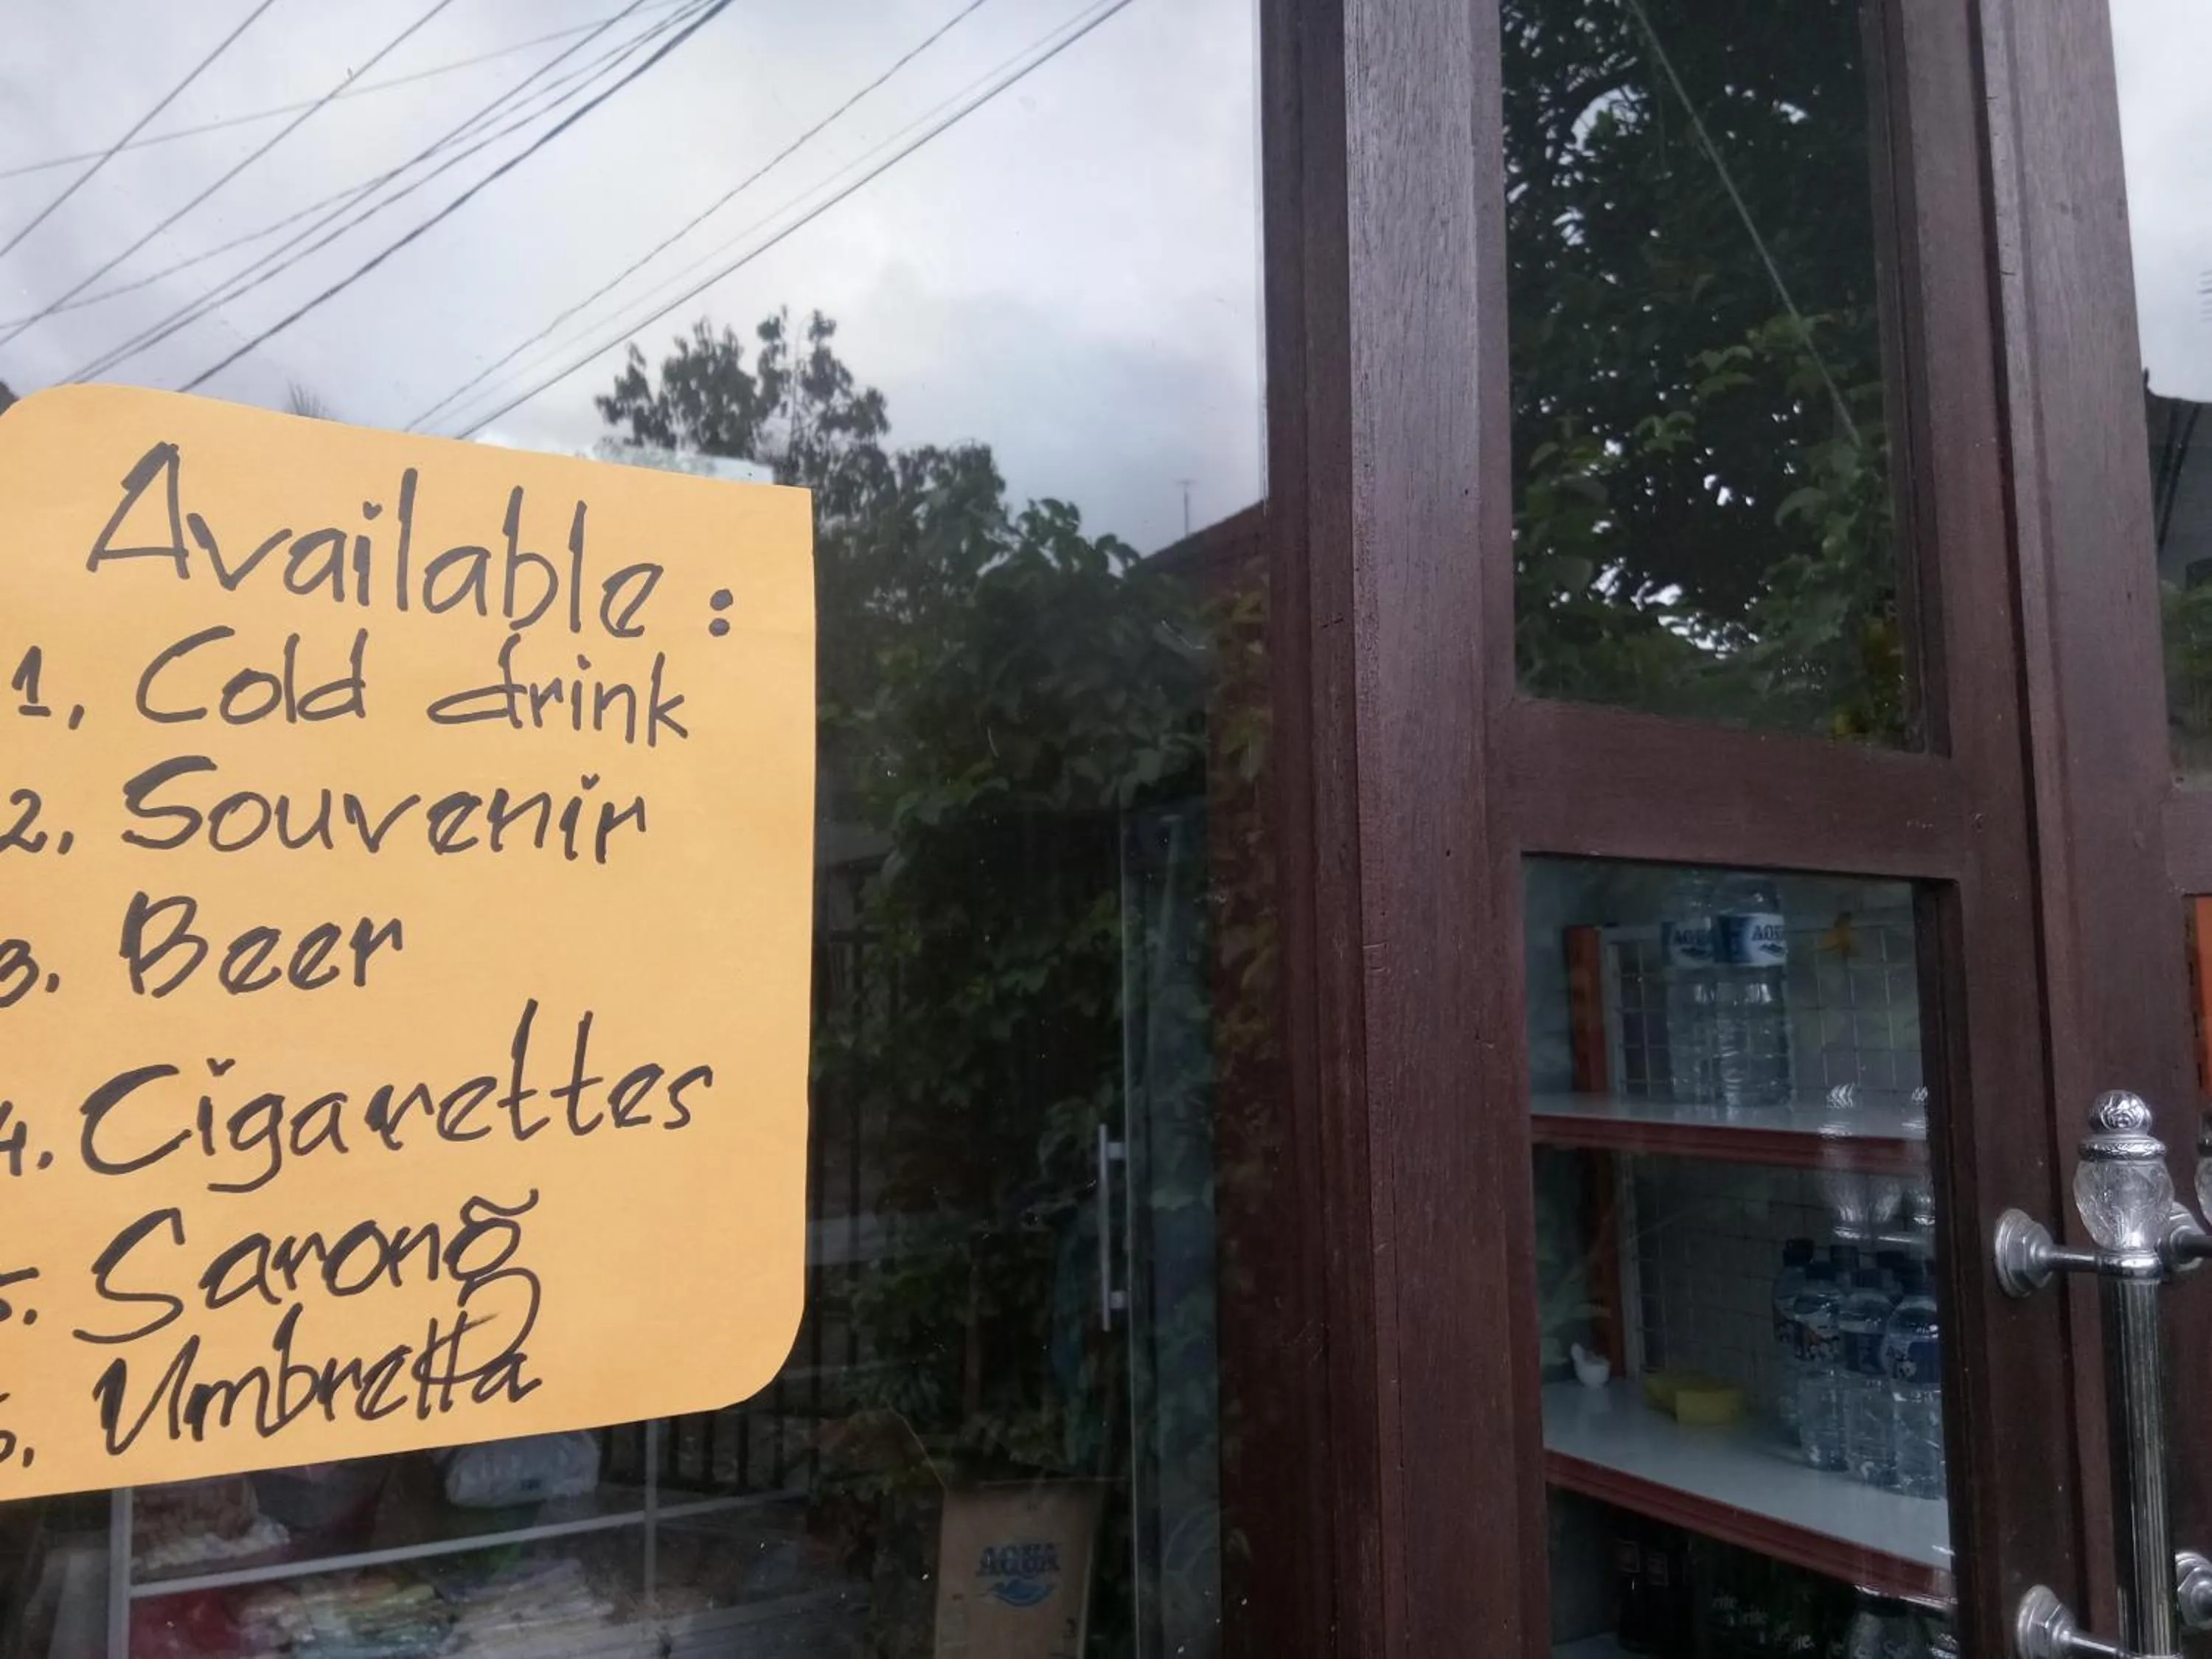 Available :
1. Cold drink
2. Souvenir
3. Beer
4. Cigarettes
5. Sarong
6. Umbrella
AQUA